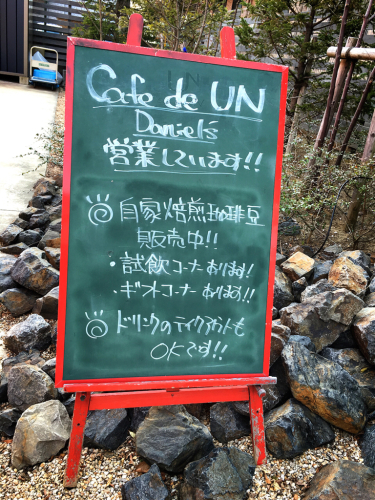 Cafe de UN
Daniel's
営業しています!!
自家焙煎珈琲豆
販売中!!
・試飲コーナーあります!
・ギフトコーナーあります!!
ドリンクのテイクアウトも
OKです!!